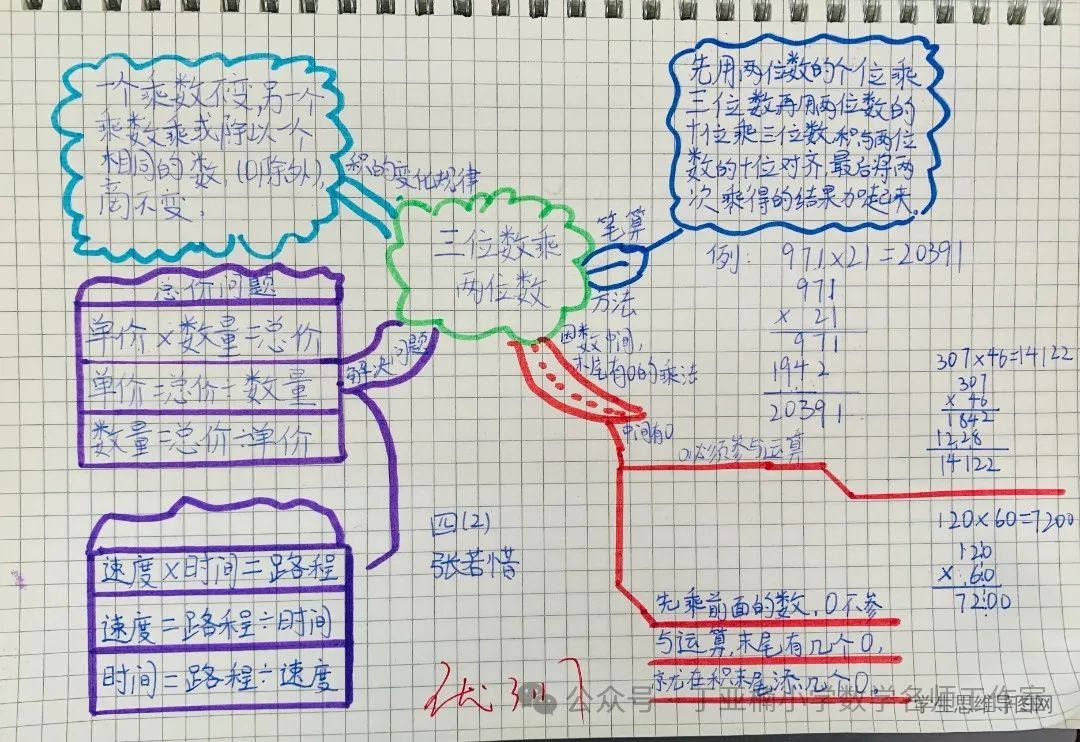 一个乘数不变,另一个
乘数乘或除以一个
相同的数,(0除外),
商不变.
积的变化规律
三位数乘
两位数
笔算
方法
先用两位数的个位乘
三位数再用两位数的
十位乘三位数,积与两位
数的十位对齐,最后将两
次乘得的结果加起来.
例: 971×21=20391
971
× 21
971
1942
20391
总价问题
单价×数量=总价
单价=总价÷数量
数量=总价÷单价
解决问题
速度×时间=路程
速度=路程÷时间
时间=路程÷速度
因数中间,
末尾有0的乘法
中间有0
0必须参与运算
307×46=14122
307
× 46
1842
1228
14122
120×60=7200
120
× 60
7200
先乘前面的数,0不参
与运算,末尾有几个0,
就在积末尾添几个0.
四(2)
张若惜
公众号·丁亚楠小学数学名师工作室
学生思维导图网